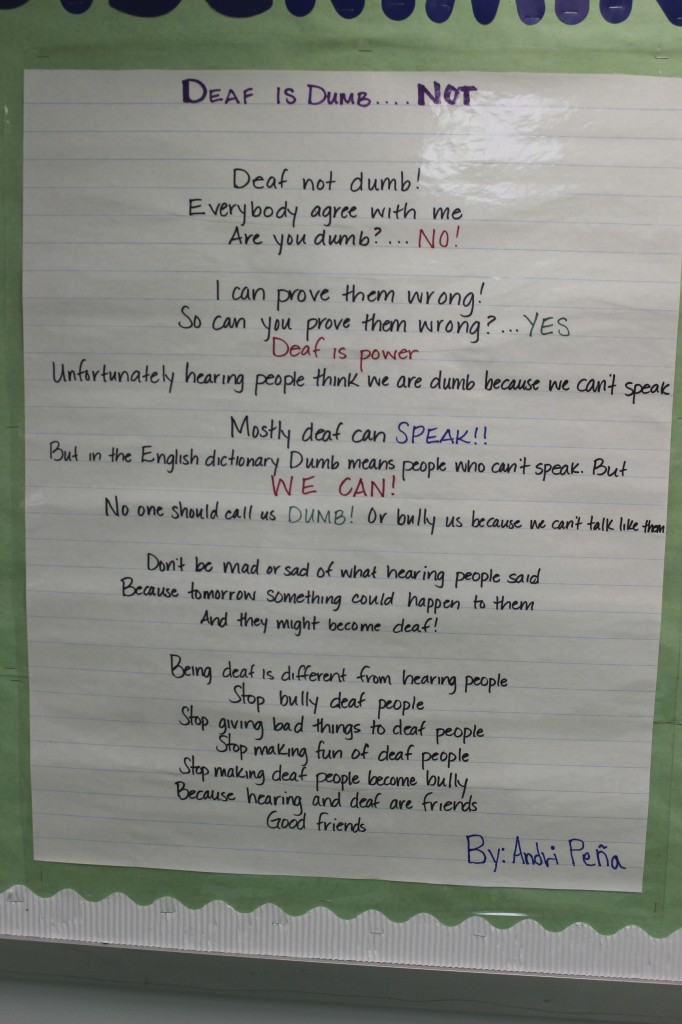 DEAF IS DUMB.... NOT
Deaf not dumb!
Everybody agree with me
Are you dumb?... NO!
I can prove them wrong!
So can you prove them wrong?...YES
Deaf is power
Unfortunately hearing people think we are dumb because we can't speak
Mostly deaf can SPEAK!!
But in the English dictionary Dumb means people who can't speak. But
WE CAN!
No one should call us DUMB! Or bully us because we can't talk like them
Don't be mad or sad of what hearing people said
Because tomorrow something could happen to them
And they might become deaf!
Being deaf is different from hearing people
Stop bully deaf people
Stop giving bad things to deaf people
Stop making fun of deaf people
Stop making deaf people become bully
Because hearing and deaf are friends
Good friends
By: Andri Peña